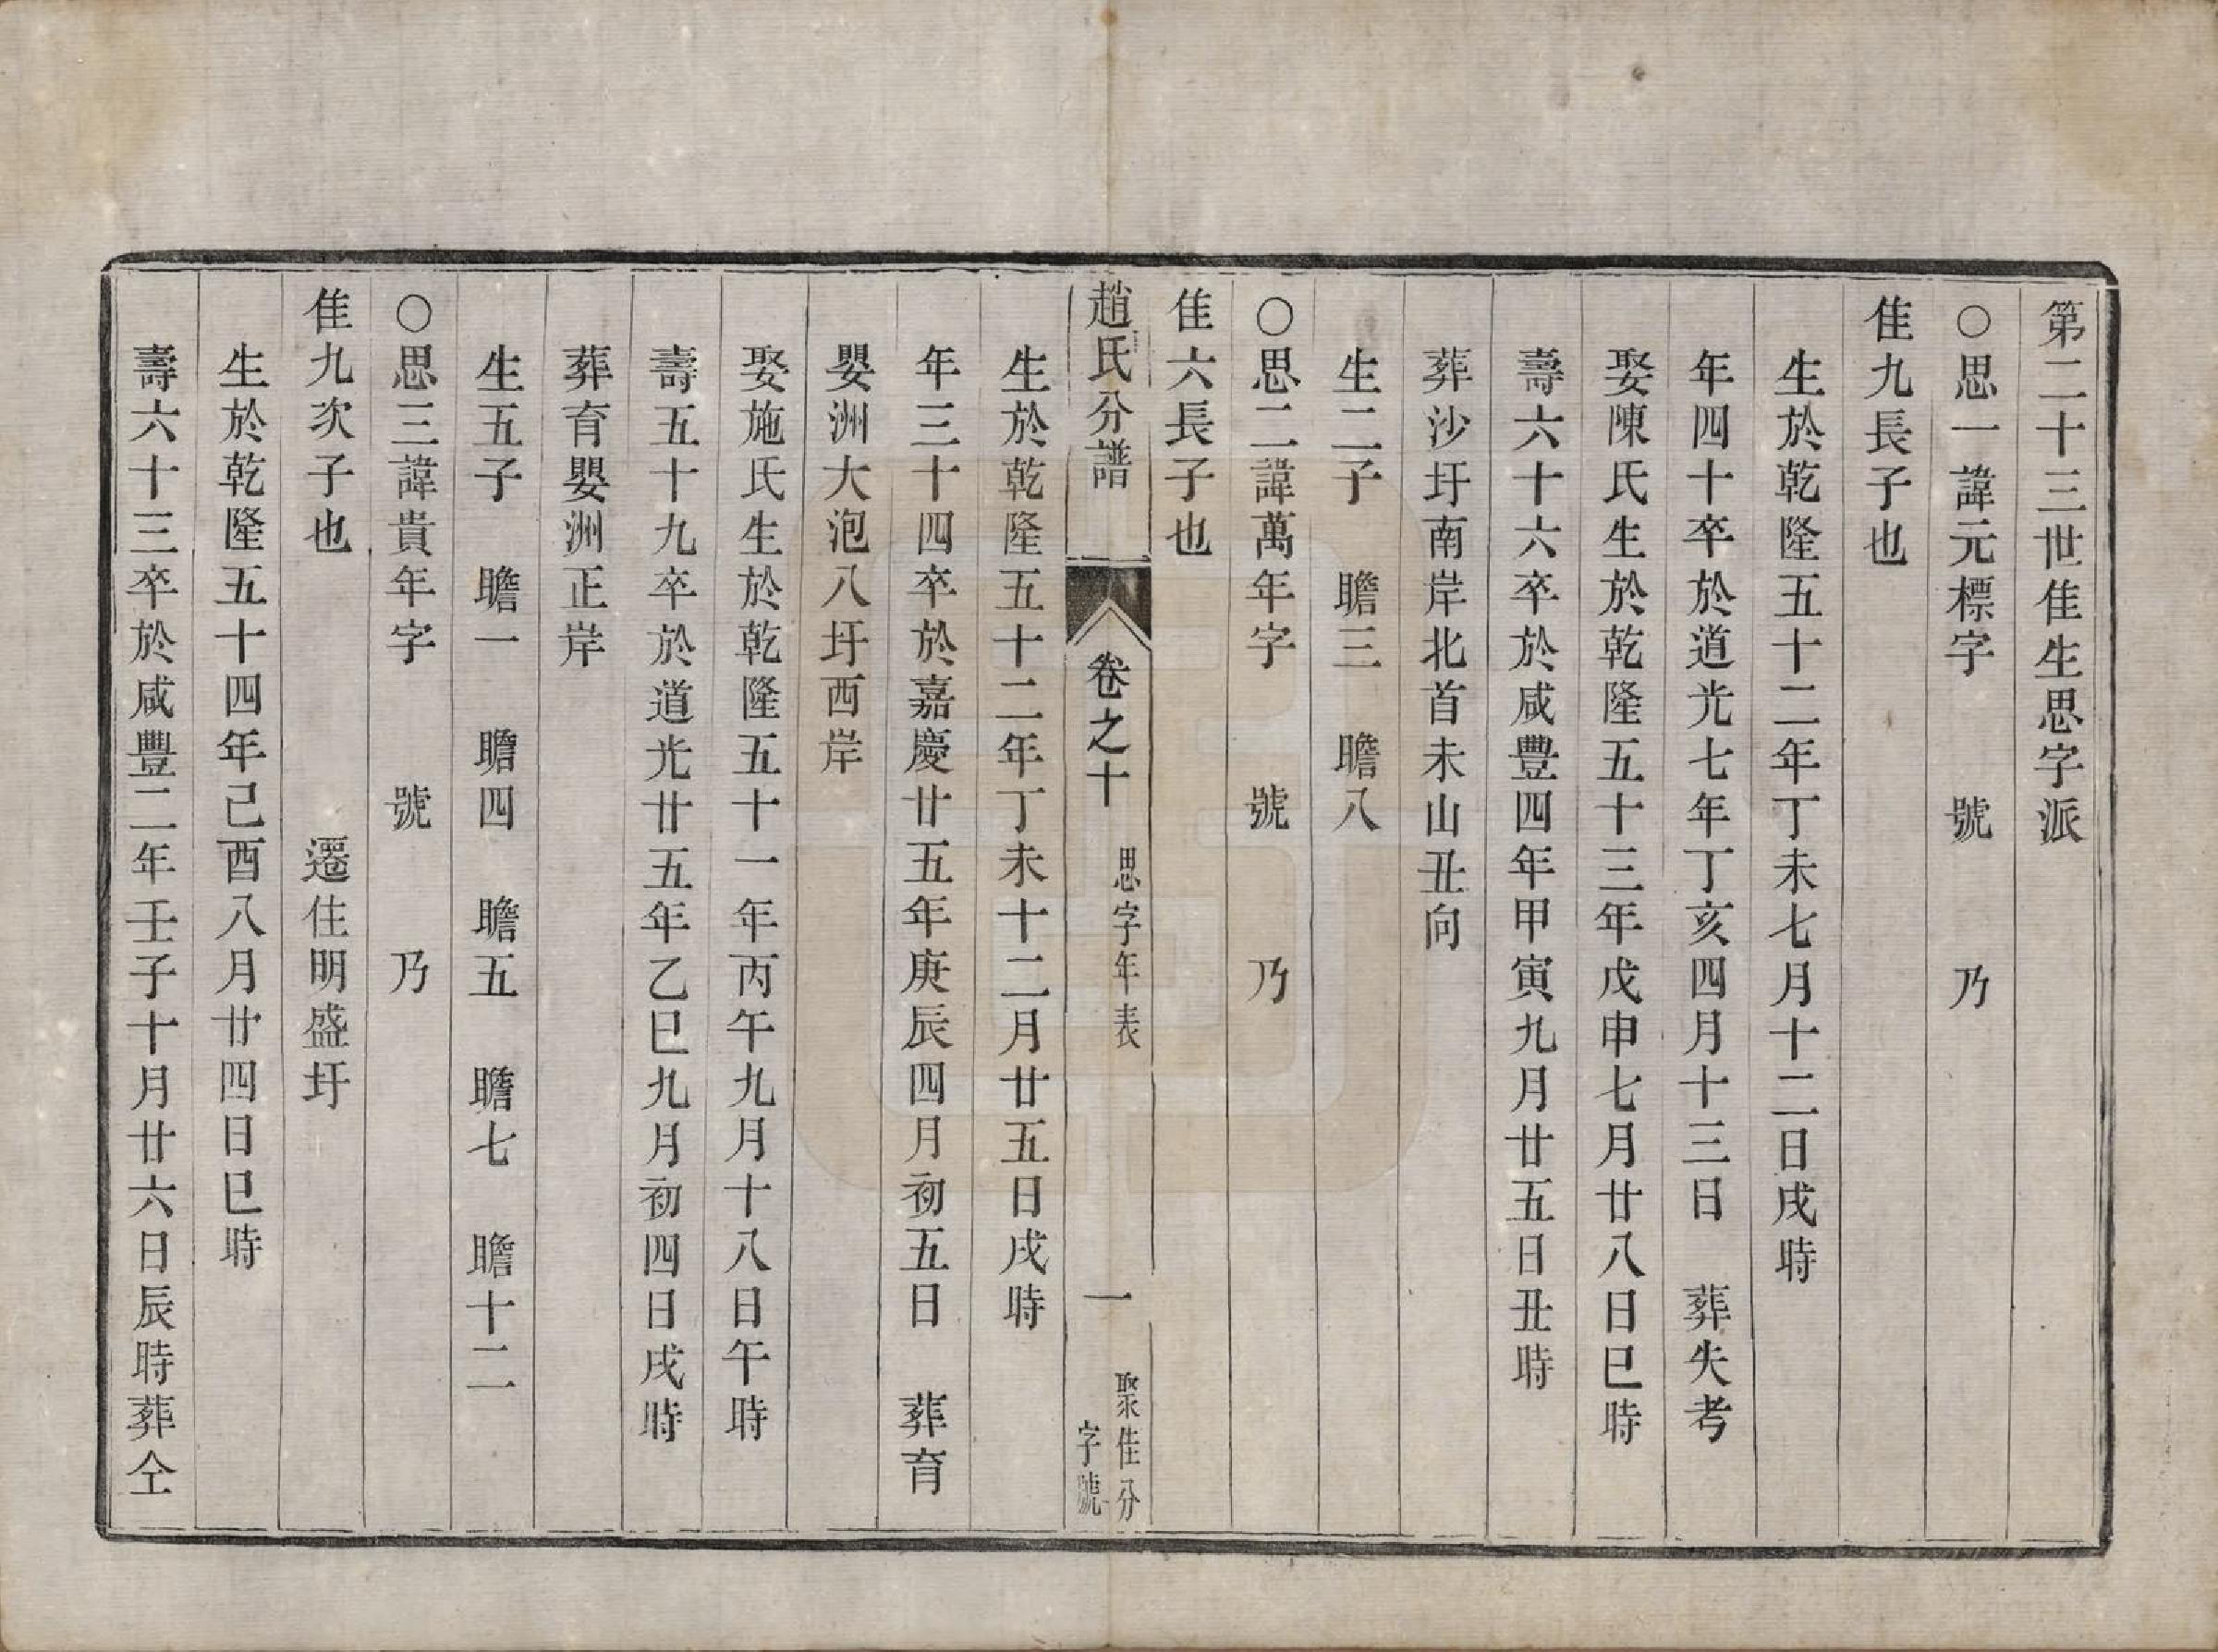 第二十三世佳生思字派
○思一諱元標字　號　乃
佳九長子也
生於乾隆五十二年丁未七月十二日戌時
年四十卒於道光七年丁亥四月十三日　葬失考
娶陳氏生於乾隆五十三年戊申七月廿八日巳時
壽六十六卒於咸豐四年甲寅九月廿五日丑時
葬沙圩南岸北首未山丑向
生二子　瞻三　瞻八
○思二諱萬年字　號　乃
佳六長子也
趙氏分譜　卷之十　思字年表　一　聚佳分字號
生於乾隆五十二年丁未十二月廿五日戌時
年三十四卒於嘉慶廿五年庚辰四月初五日　葬育
嬰洲大泡八圩西岸
娶施氏生於乾隆五十一年丙午九月十八日午時
壽五十九卒於道光廿五年乙巳九月初四日戌時
葬育嬰洲正岸
生五子　瞻一　瞻四　瞻五　瞻七　瞻十二
○思三諱貴年字　號　乃
佳九次子也　遷住明盛圩
生於乾隆五十四年己酉八月廿四日巳時
壽六十三卒於咸豐二年壬子十月廿六日辰時葬仝